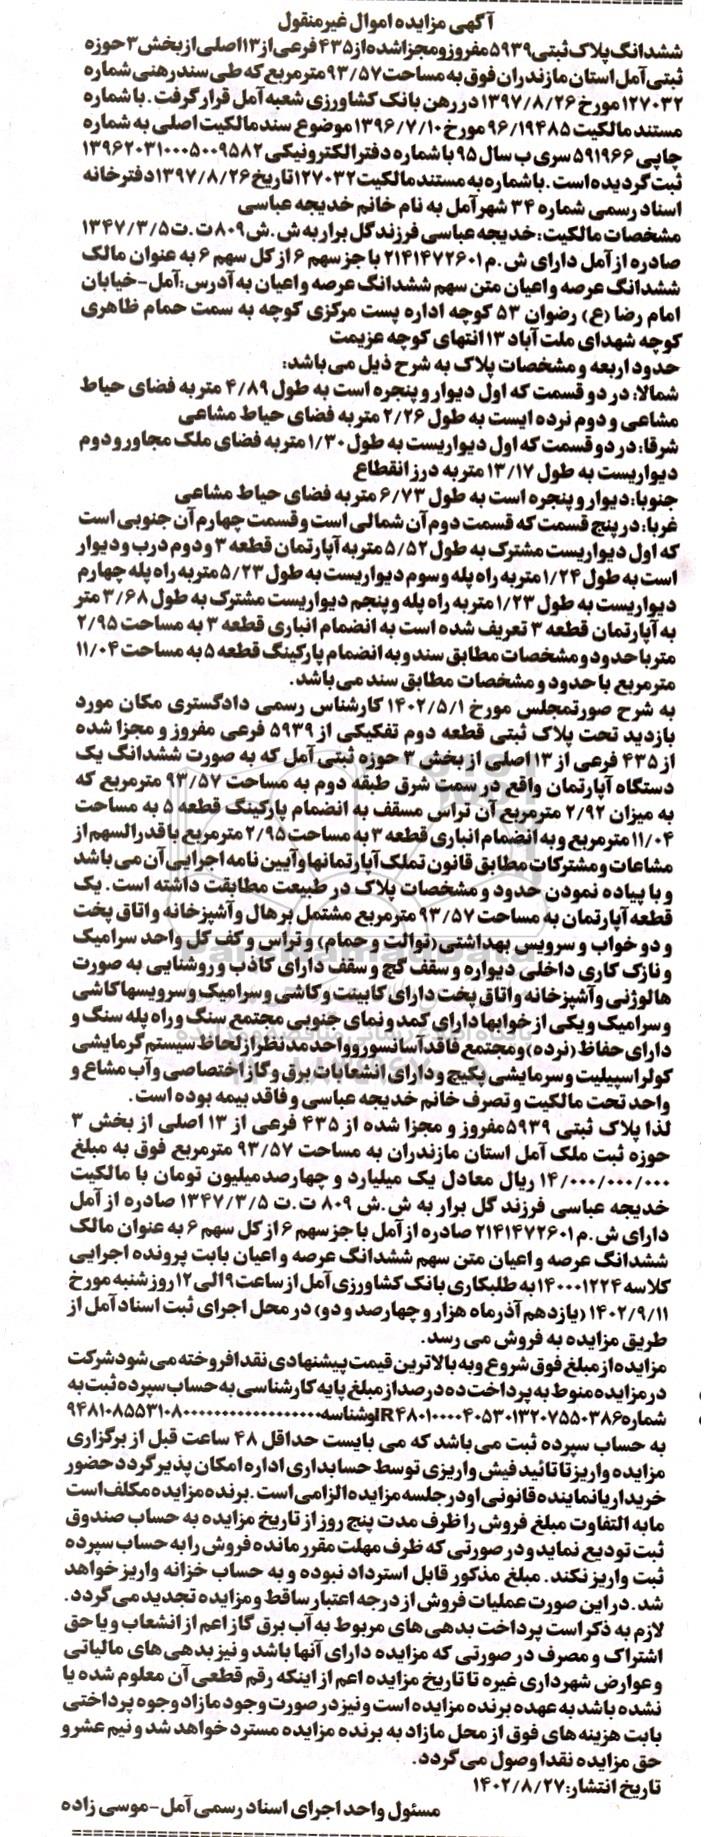 آگهی مزایده اموال غیرمنقول
ششدانگ پلاک ثبتی ۵۹۳۹ مفروز و مجزا شده از ۴۳۵ فرعی از ۱۳ اصلی از بخش ۳ حوزه
ثبتی آمل استان مازندران فوق به مساحت ۹۳/۵۷ مترمربع که طی سند رهنی شماره
۱۲۷۰۳۲ مورخ ۱۳۹۷/۸/۲۶ در رهن بانک کشاورزی شعبه آمل قرار گرفت. با شماره
مستند مالکیت ۹۶/۱۹۴۸۵ مورخ ۱۳۹۶/۷/۱۰ موضوع سند مالکیت اصلی به شماره
چاپی ۵۹۱۹۶۶ سری ب سال ۹۵ با شماره دفتر الکترونیکی ۱۳۹۶۲۰۳۱۰۰۰۵۰۰۹۵۸۲
ثبت گردیده است. با شماره به مستند مالکیت ۱۲۷۰۳۲ تاریخ ۱۳۹۷/۸/۲۶ دفترخانه
اسناد رسمی شماره ۳۴ شهر آمل به نام خانم خدیجه عباسی
مشخصات مالکیت: خدیجه عباسی فرزند گل برار به ش.ش ۸۰۹ ت.ت ۱۳۴۷/۳/۵
صادره از آمل دارای ش.م ۲۱۴۱۴۷۲۶۰۱ با جز سهم ۶ از کل سهم ۶ به عنوان مالک
ششدانگ عرصه و اعیان متن سهم ششدانگ عرصه و اعیان به آدرس: آمل-خیابان
امام رضا (ع) رضوان ۵۳ کوچه اداره پست مرکزی کوچه به سمت حمام طاهری
کوچه شهدای ملت آباد ۱۳ انتهای کوچه عزیمت
حدود اربعه و مشخصات پلاک به شرح ذیل می باشد:
شمالا: در دو قسمت که اول دیوار و پنجره است به طول ۴/۸۹ متر به فضای حیاط
مشاعی و دوم نرده ایست به طول ۲/۲۶ متر به فضای حیاط مشاعی
شرقا: در دو قسمت که اول دیواریست به طول ۱/۳۰ متر به فضای ملک مجاور و دوم
دیواریست به طول ۱۳/۱۷ متر به درز انقطاع
جنوبا: دیوار و پنجره است به طول ۶/۷۳ متر به فضای حیاط مشاعی
غربا: در پنج قسمت که قسمت دوم آن شمالی است و قسمت چهارم آن جنوبی است
که اول دیواریست مشترک به طول ۵/۵۲ متر به آپارتمان قطعه ۳ و دوم درب و دیوار
است به طول ۱/۲۴ متر به راه پله و سوم دیواریست به طول ۵/۲۳ متر به راه پله چهارم
دیواریست به طول ۱/۲۳ متر به راه پله و پنجم دیواریست مشترک به طول ۳/۶۸ متر
به آپارتمان قطعه ۳ تعریف شده است به انضمام انباری قطعه ۳ به مساحت ۲/۹۵
متر با حدود و مشخصات مطابق سند و به انضمام پارکینگ قطعه ۵ به مساحت ۱۱/۰۴
مترمربع با حدود و مشخصات مطابق سند می باشد.
به شرح صورتمجلس مورخ ۱۴۰۲/۵/۱ کارشناس رسمی دادگستری مکان مورد
بازدید تحت پلاک ثبتی قطعه دوم تفکیکی از ۵۹۳۹ فرعی مفروز و مجزا شده
از ۴۳۵ فرعی از ۱۳ اصلی از بخش ۳ حوزه ثبتی آمل که به صورت ششدانگ یک
دستگاه آپارتمان واقع در سمت شرق طبقه دوم به مساحت ۹۳/۵۷ مترمربع که
به میزان ۲/۹۲ مترمربع آن تراس مسقف به انضمام پارکینگ قطعه ۵ به مساحت
۱۱/۰۴ مترمربع و به انضمام انباری قطعه ۳ به مساحت ۲/۹۵ مترمربع با قدرالسهم از
مشاعات و مشترکات مطابق قانون تملک آپارتمانها و آیین نامه اجرایی آن می باشد
و با پیاده نمودن حدود و مشخصات پلاک در طبیعت مطابقت داشته است. یک
قطعه آپارتمان به مساحت ۹۳/۵۷ مترمربع مشتمل بر هال و آشپزخانه و اتاق پخت
و دو خواب و سرویس بهداشتی (توالت و حمام) و تراس و کف کل واحد سرامیک
و نازک کاری داخلی دیواره و سقف گچ و سقف دارای کاذب و روشنایی به صورت
هالوژنی و آشپزخانه و اتاق پخت دارای کابینت و کاشی و سرامیک و سرویسها کاشی
و سرامیک و یکی از خوابها دارای کمد و نمای جنوبی مجتمع سنگ و راه پله سنگ و
دارای حفاظ (نرده) و مجتمع فاقد آسانسور و واحد مدنظر از لحاظ سیستم گرمایشی
کولر اسپیلیت و سرمایشی پکیج و دارای انشعابات برق و گاز اختصاصی و آب مشاع و
واحد تحت مالکیت و تصرف خانم خدیجه عباسی و فاقد بیمه بوده است.
لذا پلاک ثبتی ۵۹۳۹ مفروز و مجزا شده از ۴۳۵ فرعی از ۱۳ اصلی از بخش ۳
حوزه ثبت ملک آمل استان مازندران به مساحت ۹۳/۵۷ مترمربع فوق به مبلغ
۱۴/۰۰۰/۰۰۰/۰۰۰ ریال معادل یک میلیارد و چهارصد میلیون تومان با مالکیت
خدیجه عباسی فرزند گل برار به ش.ش ۸۰۹ ت.ت ۱۳۴۷/۳/۵ صادره از آمل
دارای ش.م ۲۱۴۱۴۷۲۶۰۱ صادره از آمل با جز سهم ۶ از کل سهم ۶ به عنوان مالک
ششدانگ عرصه و اعیان متن سهم ششدانگ عرصه و اعیان بابت پرونده اجرایی
کلاسه ۱۴۰۰۰۱۲۲۴ به طلبکاری بانک کشاورزی آمل از ساعت ۹ الی ۱۲ روز شنبه مورخ
۱۴۰۲/۹/۱۱ (یازدهم آذرماه هزار و چهارصد و دو) در محل اجرای ثبت اسناد آمل از
طریق مزایده به فروش می رسد.
مزایده از مبلغ فوق شروع و به بالاترین قیمت پیشنهادی نقدا فروخته می شود شرکت
در مزایده منوط به پرداخت ده درصد از مبلغ پایه کارشناسی به حساب سپرده ثبت به
شماره IR و شناسه
به حساب سپرده ثبت می باشد که می بایست حداقل ۴۸ ساعت قبل از برگزاری
مزایده واریز تا تائید فیش واریزی توسط حسابداری اداره امکان پذیر گردد حضور
خریدار یا نماینده قانونی او در جلسه مزایده الزامی است. برنده مزایده مکلف است
مابه التفاوت مبلغ فروش را ظرف مدت پنج روز از تاریخ مزایده به حساب صندوق
ثبت تودیع نماید و در صورتی که ظرف مهلت مقرر مانده فروش را به حساب سپرده
ثبت واریز نکند. مبلغ مذکور قابل استرداد نبوده و به حساب خزانه واریز خواهد
شد. در این صورت عملیات فروش از درجه اعتبار ساقط و مزایده تجدید می گردد.
لازم به ذکر است پرداخت بدهی های مربوط به آب برق گاز اعم از انشعاب و یا حق
اشتراک و مصرف در صورتی که مزایده دارای آنها باشد و نیز بدهی های مالیاتی
و عوارض شهرداری غیره تا تاریخ مزایده اعم از اینکه رقم قطعی آن معلوم شده یا
نشده باشد به عهده برنده مزایده است و نیز در صورت وجود مازاد وجوه پرداختی
بابت هزینه های فوق از محل مازاد به برنده مزایده مسترد خواهد شد و نیم عشر و
حق مزایده نقدا وصول می گردد.
تاریخ انتشار: ۱۴۰۲/۸/۲۷
مسئول واحد اجرای اسناد رسمی آمل-موسی زاده